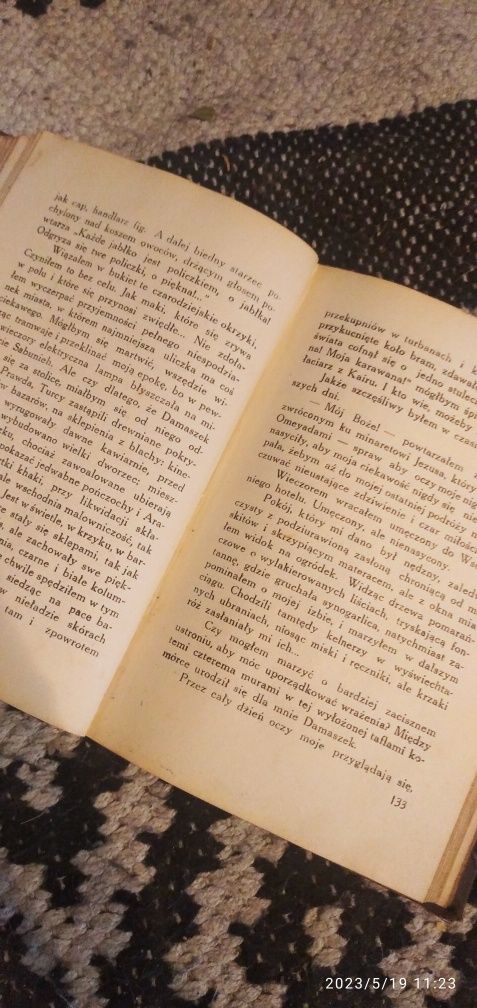 jak cap, handlarz fig. A dalej biedny starzec po-
chylony nad koszem owoców, drżącym głosem po-
wtarza „Każde jabłko jest policzkiem, o jabłka!
Odgryza się twe policzki, o piękna!..."
Wiązałem w bukiet te czarodziejskie okrzyki,
Czyniłem to bez celu. Jak maki, które się zrywa
w polu i które się przynosi zwiędłe... Nie zdoła-
łem wyczerpać przyjemności pełnego niespodzia-
nek miasta, w którem najmniejsza uliczka ma coś
ciekawego. Mógłbym się martwić, wszędzie wi-
tramwaje i przeklinać moją epokę, bo w pew-
wieczory elektryczna lampa błyszczała na mi-
Sabunieh. Ale czy dlatego, że Damaszek
się za stolicę, miałbym się od niego od-
Prawda, Turcy zastąpili drewniane pokry-
bazarów, na sklepienia z blachy: kine-
wyrugowały dawne kawiarnie, przed
wybudowano wielki dworzec; miesz-
chociaż zawoalowane ubierają
pokazać jedwabne pończochy i Ara-
khaki, przy likwidacji skła-
wschodnia malowniczość, tak
Jest w świetle, w krzyku, w bar-
stały się sklepami, tak jak
ale zachowały swe pięk-
czarne i białe kolum-
chwile spędziłem w tym
siedząc na pace ba-
w nieładzie skórach
tam i zpowrotem
przekupniów w turbanach i
przykucnięte koło bram, zdawał
świata cofnął się o jedno stulec
na! Moja karawana!" mógłbym
łaciarz z Kairu. I kto wie, możeby
Jakże szczęśliwy byłem w czasie
szych dni.
— Mój Boże! — powtarzałem
zwróconym ku minaretowi Jezusa, który
Omeyadami — spraw aby, oczy moje nig
nasyciły, aby moja ciekawość nigdy się, nie
pała, żebym aż do mojej ostatniej podróży
czuwać nieustające zdziwienie i czar miłośc
Wieczorem wracałem, umęczony do
niego hotelu. Umęczony, ale nienasycony.
Pokój, który mi dano, był nędzny, zaled
czysty z podziurawioną zasłoną chroniącą od m
skitów i skrzypiącym materacem, ale z okna mia
łem widok na ogródek. Widząc drzewa pomarań-
czowe o wylakierowanych liściach, tryskającą fon-
tannę, gdzie gruchała synogarlica, natychmiast za-
pominałem o mojej izbie, i marzyłem w dalszym
ciągu. Chodzili tamtędy kelnerzy w wyświechta-
nych ubraniach, niosąc miski i ręczniki, ale krzaki
róż zasłaniały mi ich...
Czy mogłem marzyć o bardziej zacisznem
ustroniu, aby móc uporządkować wrażenia? Między
temi czterema murami w tej wyłożonej taflami ko-
mórce urodził się dla mnie Damaszek.
Przez cały dzień oczy moje przyglądają się,
133
2023/5/19 11:23